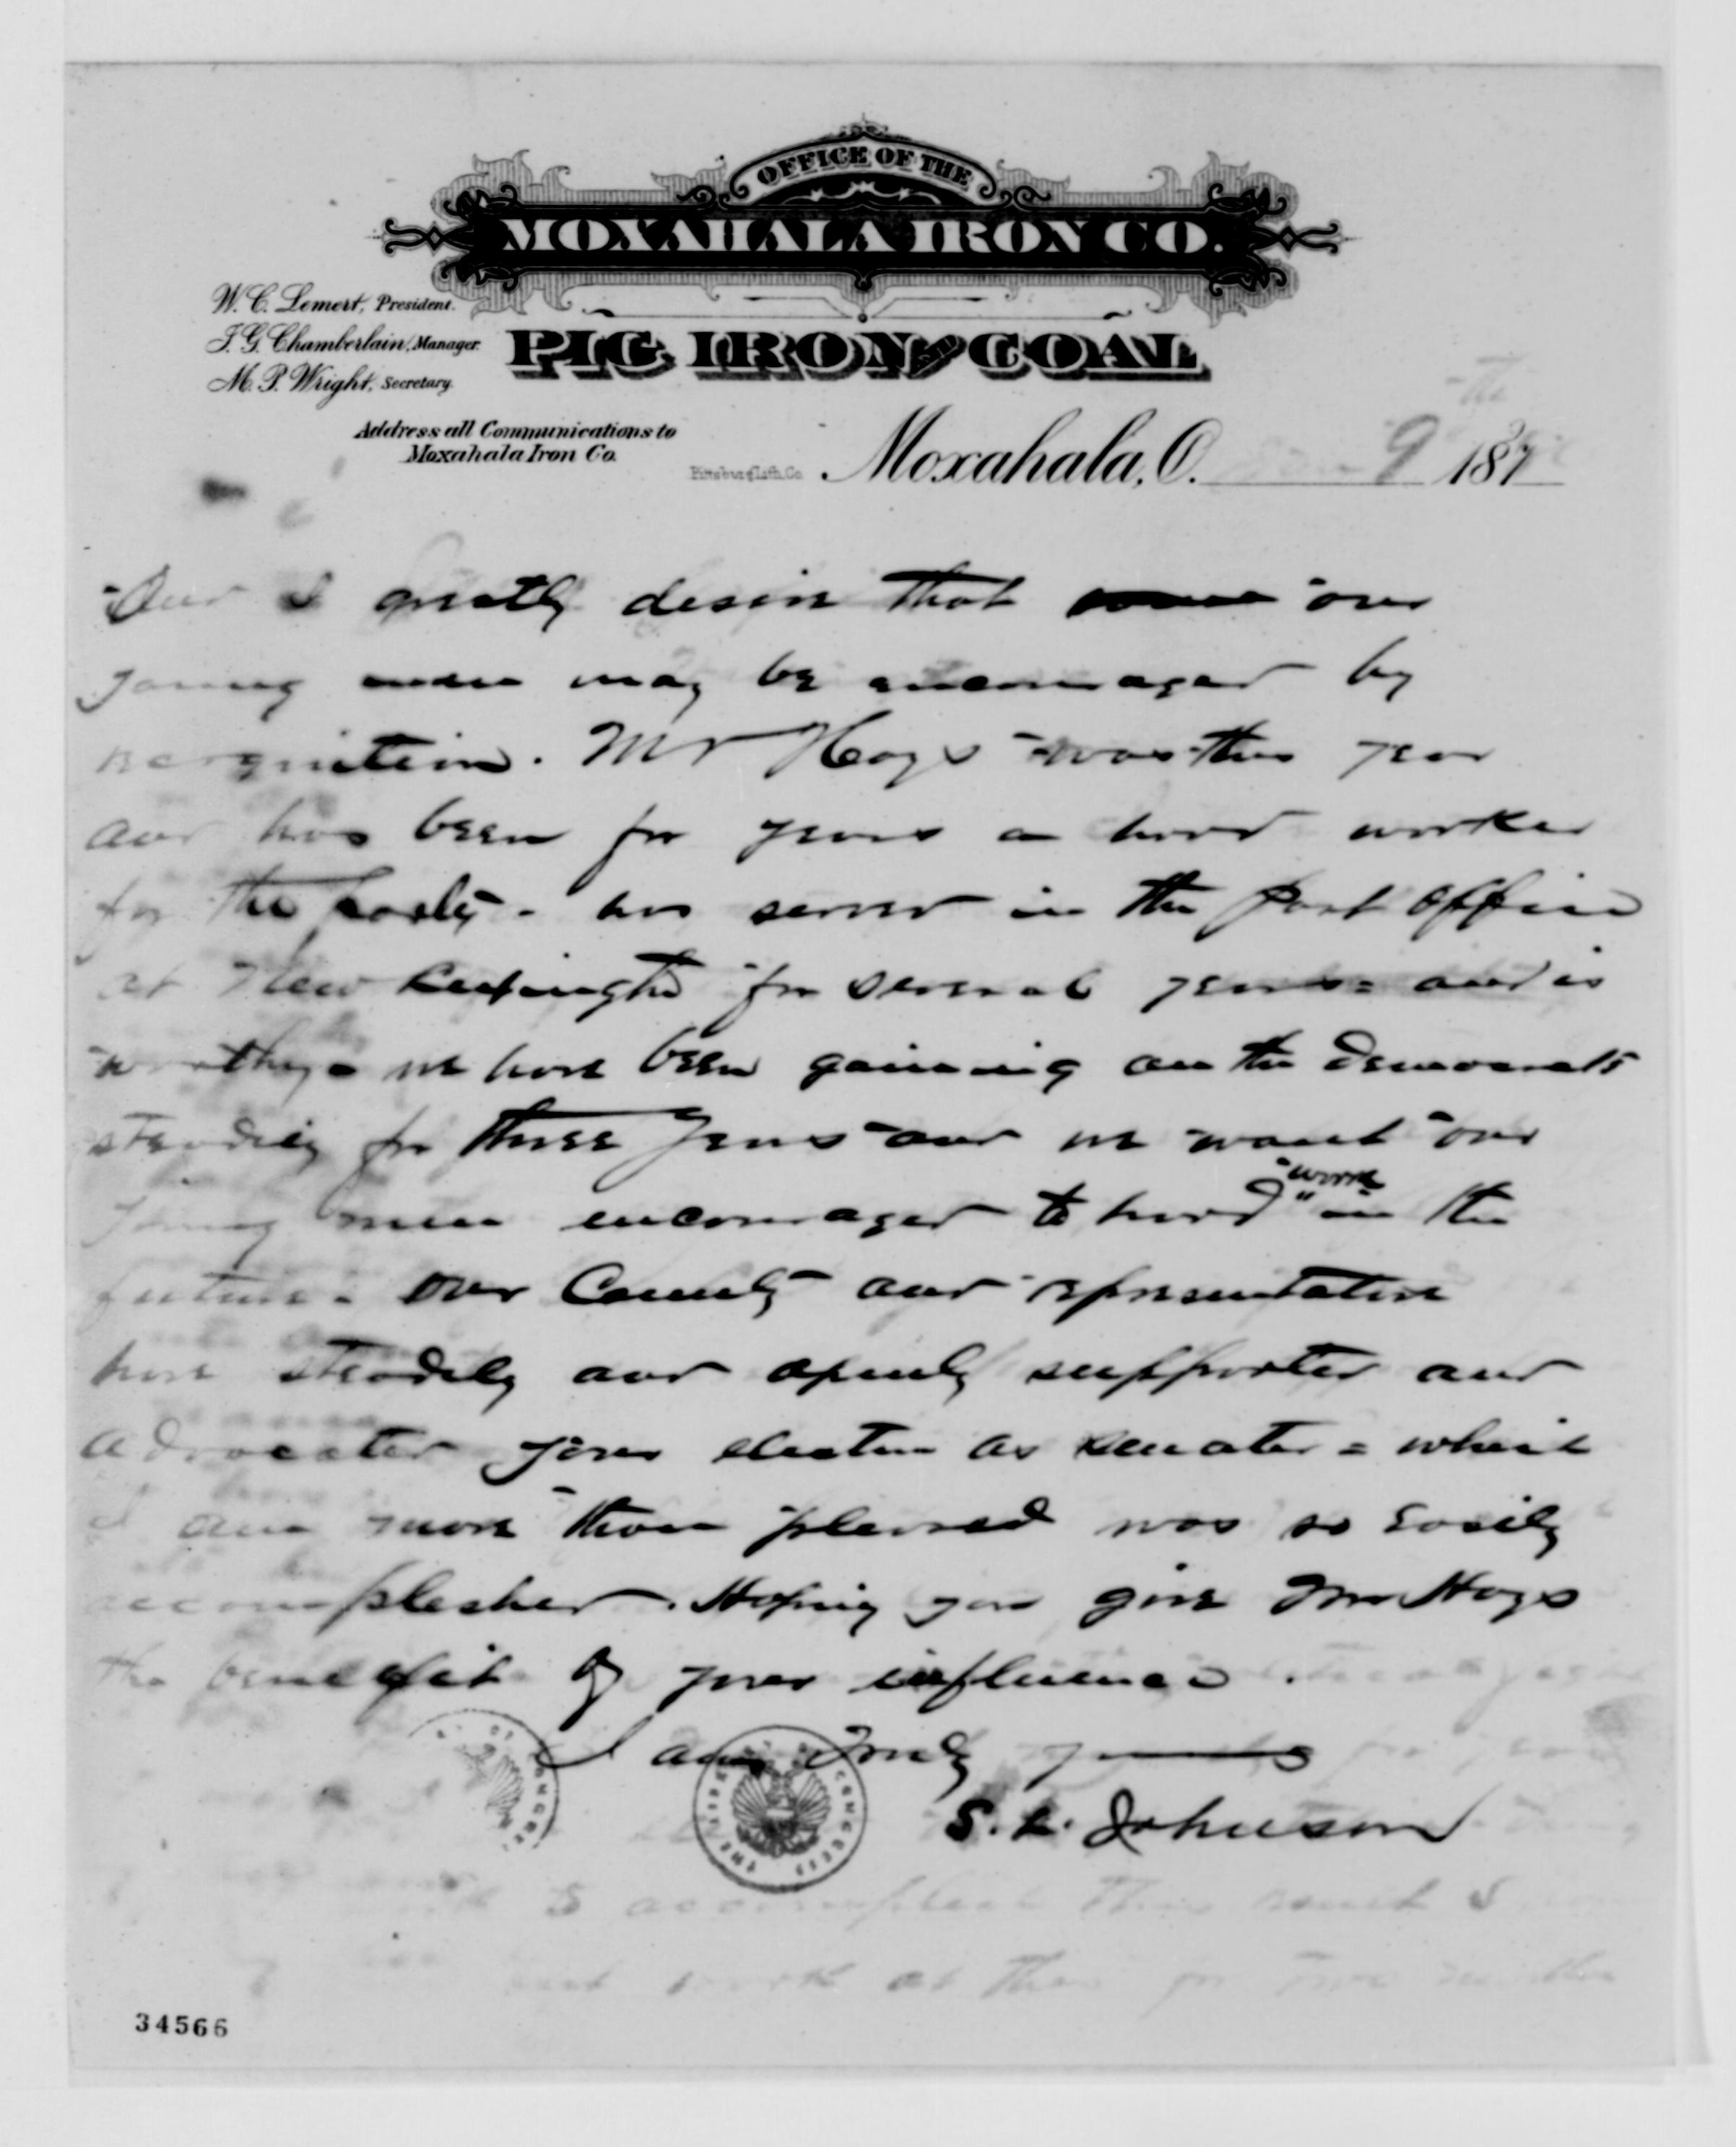 OFFICE OF THE
MOXAHALA IRON CO.
W. C. Lemert, President.
J. G. Chamberlain, Manager.
M. P. Wright, Secretary.
PIG IRON AND COAL
Address all Communications to
Moxahala Iron Co.
Pittsburg Lith. Co.
Moxahala, O. 9th 187
I greatly desire that our
young men may be encouraged by
recognition. Mr Hays was this year
and has been for years a hard worker
for the party - has served in the Post Office
at New Lexington for several years - and is
worthy - we have been gaining on the democrats
steadily for three years and we want our
young men encouraged to hard work in the
future - Our County and representative
have steadily and openly supported and
advocated your election as senator = which
I am more than pleased was so easily
accomplished. Hoping you give Mr Hays
the benefit of your influence.
I am Truly yours
S. L. Johnson
THE LIBRARY OF CONGRESS
34566